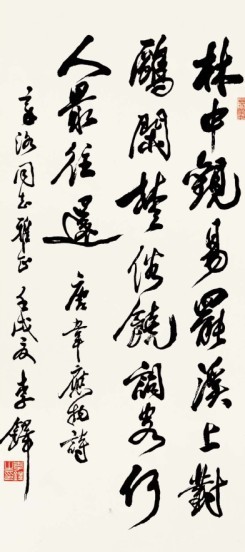 林中觀易罷溪上對
鷗閑楚俗饒詞客何
人最往還 唐韋應物詩
洛同志雅正 壬戌夏 李鐸